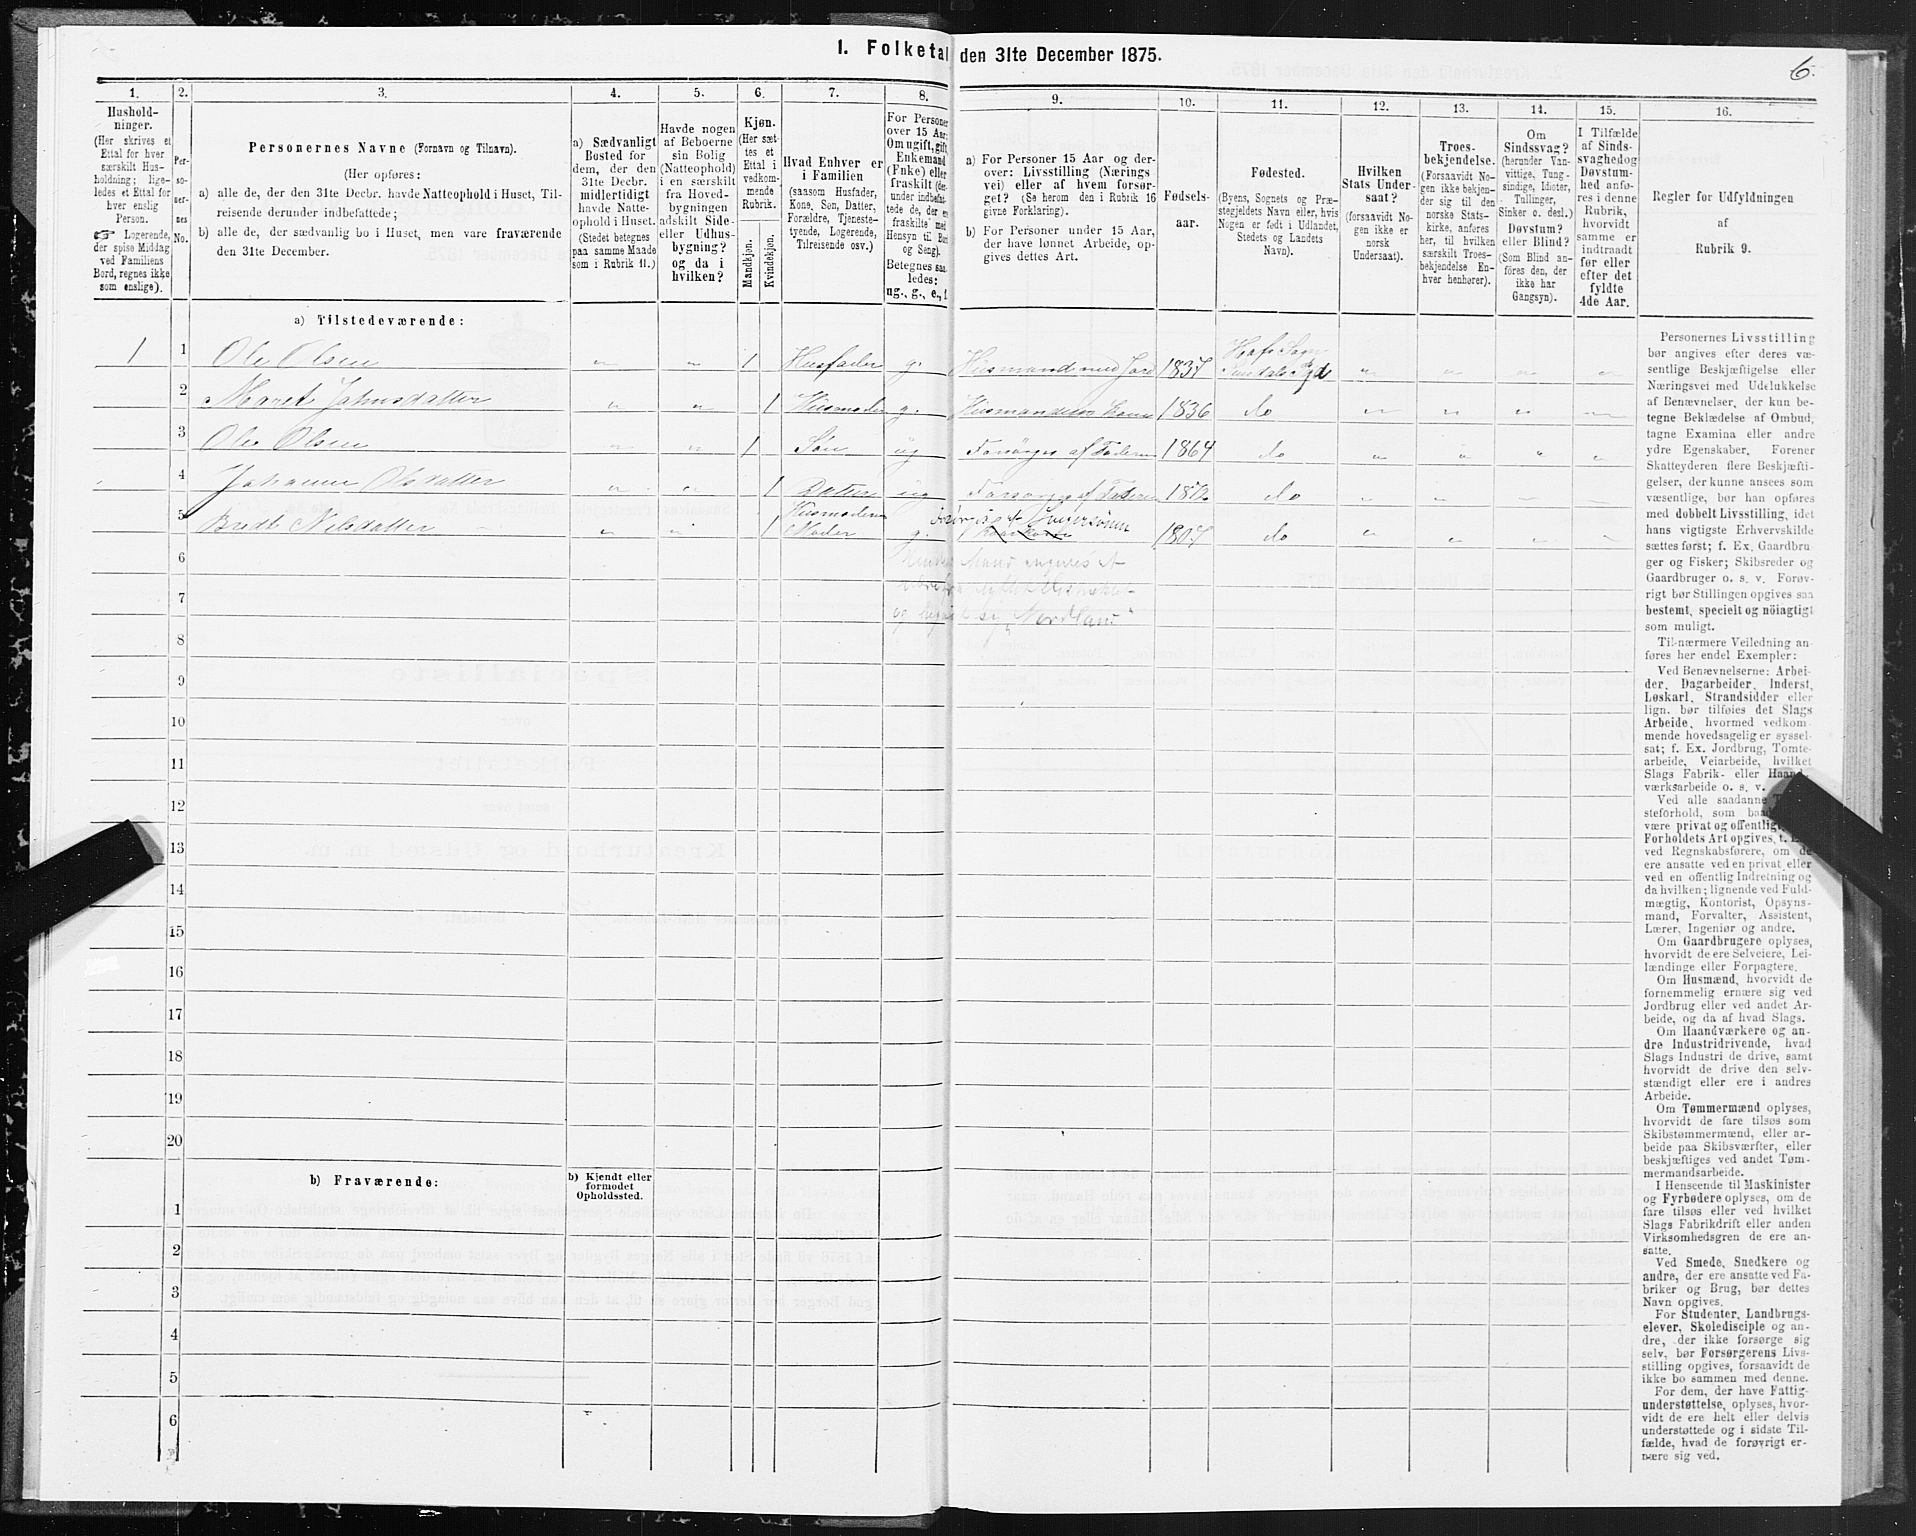 1. Folketal den 31te December 1875.
6.
1.
2.
3.
4.
5.
6.
7.
8.
9.
10.
11.
12.
13.
14.
15.
16.
Hushold-
ninger.
(Her skrives et
Ettal for hver
særskilt Hus-
holdning; lige-
ledes et Ettal for
hver enslig
Person.
Logerende,
der spise Middag
ved Familiens
Bord, regnes ikke
som enslige).
Per-
so-
ner-
nes
No.
Personernes Navne (Fornavn og Tilnavn).
(Her opføres:
a) alle de, der den 31te Decbr. havde Natteophold i Huset, Til-
reisende derunder indbefattede;
b) alle de, der sædvanlig bo i Huset, men vare fraværende
den 31te December.
a) Sædvanligt
Bosted for
dem, der den
31te Decbr.
midlertidigt
havde Natte-
ophold i Huset.
(Stedet betegnes
paa samme Maade
som i Rubrik 11.)
Havde nogen
af Beboerne
sin Bolig
(Natteophold)
i en særskilt
fra Hoved-
bygningen
adskilt Side-
eller Udhus-
bygning?
og da i
hvilken?
Kjøn.
(Her sæt-
tes et
Ettal i
vedkom-
mende
Rubrik.
Mandkjøn.
Kvindekjøn.
Hvad Enhver er
i Familien
(saasom Husfader,
Kone, Søn, Datter,
Forældre, Tjeneste-
tyende, Logerende,
Tilreisende osv.)
For Personer
over 15 Aar:
Om ugift, gift,
Enkemand
(Enke) eller
fraskilt (der-
under indbefat-
tede de, der er
fraskilte med
Hensyn til Bord
og Seng).
Betegnes saa-
ledes:
ug., g., e., f.
a) For Personer 15 Aar og der-
over: Livsstilling (Nærings
vei) eller af hvem forsør-
get? (Se herom den i Rubrik 16
givne Forklaring).
b) For Personer under 15 Aar,
der have lønnet Arbeide, op-
gives dettes Art.
Fødsels-
aar.
Fødested.
(Byens, Sognets og Præ-
stegjeldets Navn eller, hvis
Nogen er født i Udlandet,
Stedets og Landets
Navn).
Hvilken
Stats Under-
saat?
(forsaavidt No-
gen ikke er
norsk
Undersaat).
Troes-
bekjendelse.
(Forsaavidt No-
gen ikke bekjen-
der sig til den
norske Stats-
kirke, anføres
her, til hvilken
særskilt Troes-
bekjendelse En-
hver henhører).
Om
Sindssvag?
(herunder Van-
vittige, Tung-
sindige, Idioter,
Tullinger,
Sinker o. desl.)
Døvstum?
eller Blind?
(Som Blind an-
føres den, der
ikke har
Gangsyn).
I Tilfælde
af Sinds-
svaghedog
Døvstum-
hed anfø-
res i denne
Rubrik,
hvorvidt
samme er
indtraadt
før eller
efter det
fyldte
4de Aar.
Regler for Udfyldningen
af
Rubrik 9.
a) Tilstedeværende:
1 1 Ole Olsen " " 1 Husfader g. Husmand med Jord 1837 Hofs Sogn
Sundals Pgd " " " "
2 Marit Johnsdatter " " 1 Husmoder g. Husmandens Kone 1836 do " " " "
3 Ole Olsen " " 1 Søn ug Forsørges af Faderen 1864 do " " " "
4 Johanne Olsdatter " " 1 Datter ug Forsørges af Faderen do " " " "
Husmoderens
5 Nilsdatter " " 1 Moder g. 1807 do " " " "
og Nordland"
6
7
8
9
10
11
12
13
14
15
16
17
18
19
20
b) Fraværende:
b) Kjendt eller
formodet
Opholdssted.
1
2
3
4
5
6
Personernes Livsstilling
bør angives efter deres væ-
sentlige Beskjæftigelse eller
Næringsvei med Udelukkelse
af Benævnelser, der kun be-
tegne Beklædelse af Ombud,
tagne Examina eller andre
ydre Egenskaber. Forener
Skatteyderen flere Beskjæfti-
gelser, der kunne ansees som
væsentlige, bør han opføres
med dobbelt Livsstilling, idet
hans vigtigste Erhvervskilde
sættes først; f. Ex. Gaardbru-
ger og Fisker; Skibsreder og
Gaardbruger o. s. v. Forøv-
rigt bør Stillingen opgives saa
bestemt, specielt og nöiagtigt
som muligt.
Til nærmere Veiledning an-
føres her endel Exempler:
Ved Benævnelserne: Arbei-
der, Dagarbeider, Inderst,
Løskarl, Strandsidder eller
lign. bør tilføies det Slags
Arbeide, hvormed vedkom-
mende hovedsagelig er syssel-
sat; f. Ex. Jordbrug, Tomte-
arbeide, Veiarbeide, hvilket
Slags Fabrik- eller Haand-
værksarbeide o. s. v.
Ved alle saadanne
steforhold, som
være privat og offentlig,
Forholdets Art opgives, t.
ved Regnskabsførere, om de
ere ansatte ved en privat eller
ved en offentlig Indretning og
da hvilken; lignende ved Fuld-
mægtig, Kontorist, Opsyns-
mand, Forvalter, Assistent,
Lærer, Ingeniør og andre.
Om Gaardbrugere oplyses,
hvorvidt de ere Selveiere, Lei-
lændinge eller Forpagtere.
Om Husmænd, hvorvidt de
fornemmelig ernære sig ved
Jordbrug eller ved andet Ar-
beide, og da af hvad Slags.
Om Haandværkere og an-
dre Industridrivende, hvad
Slags Industri de drive, samt
hvorvidt de drive den selv-
stændigt eller ere i andres
Arbeide.
Om Tømmermænd oplyses,
hvorvidt de fare tilsøs som
Skibstømmermænd, eller ar-
beide paa Skibsværfter, eller
beskjæftiges ved andet Tøm-
mermandsarbeide.
I Henseende til Maskinister
og Fyrbødere oplyses, om de
fare tilsøs eller ved hvilket
Slags Fabrikdrift eller anden
Virksomhedsgren de ere an-
satte.
Ved Smede, Snedkere og
andre, der ere ansatte ved Fa-
briker og Brug, bør dettes
Navn opgives.
For Studenter, Landbrugs-
elever, Skoledisciple og an-
dre, der ikke forsørge sig
selv, bør Forsørgerens Livs-
stilling opgives, forsaavidt de
ikke bo sammen med denne.
For dem, der have Fattig-
understøttelse, oplyses, hvor-
vidt de ere helt eller delvis
understøttede og i sidste Til-
fælde, hvad de forøvrigt er-
nære sig ved.